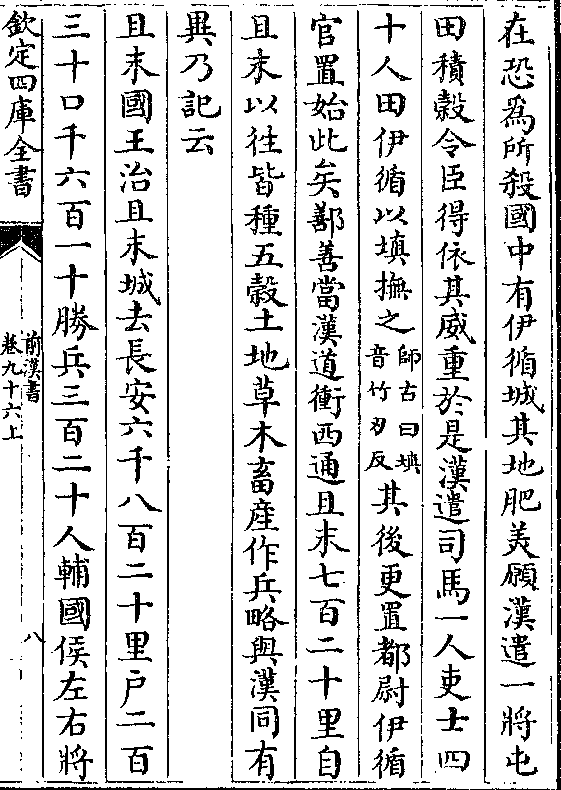 在恐為所殺國中有伊循城其地肥美願漢遣一將屯
田積穀令臣得依其威重於是漢遣司馬一人吏士四
十人田伊循以填撫之師古曰填音竹刃反其後更置都尉伊循
官置始此矣鄯善當漢道衝西通且末七百二十里自
且末以往皆種五穀土地草木畜産作兵略與漢同有
異乃記云
且末國王治且末城去長安六千八百二十里户二百
三十口千六百一十勝兵三百二十人輔國侯左右將
欽定四庫全書
前漢書
卷九十六上
八